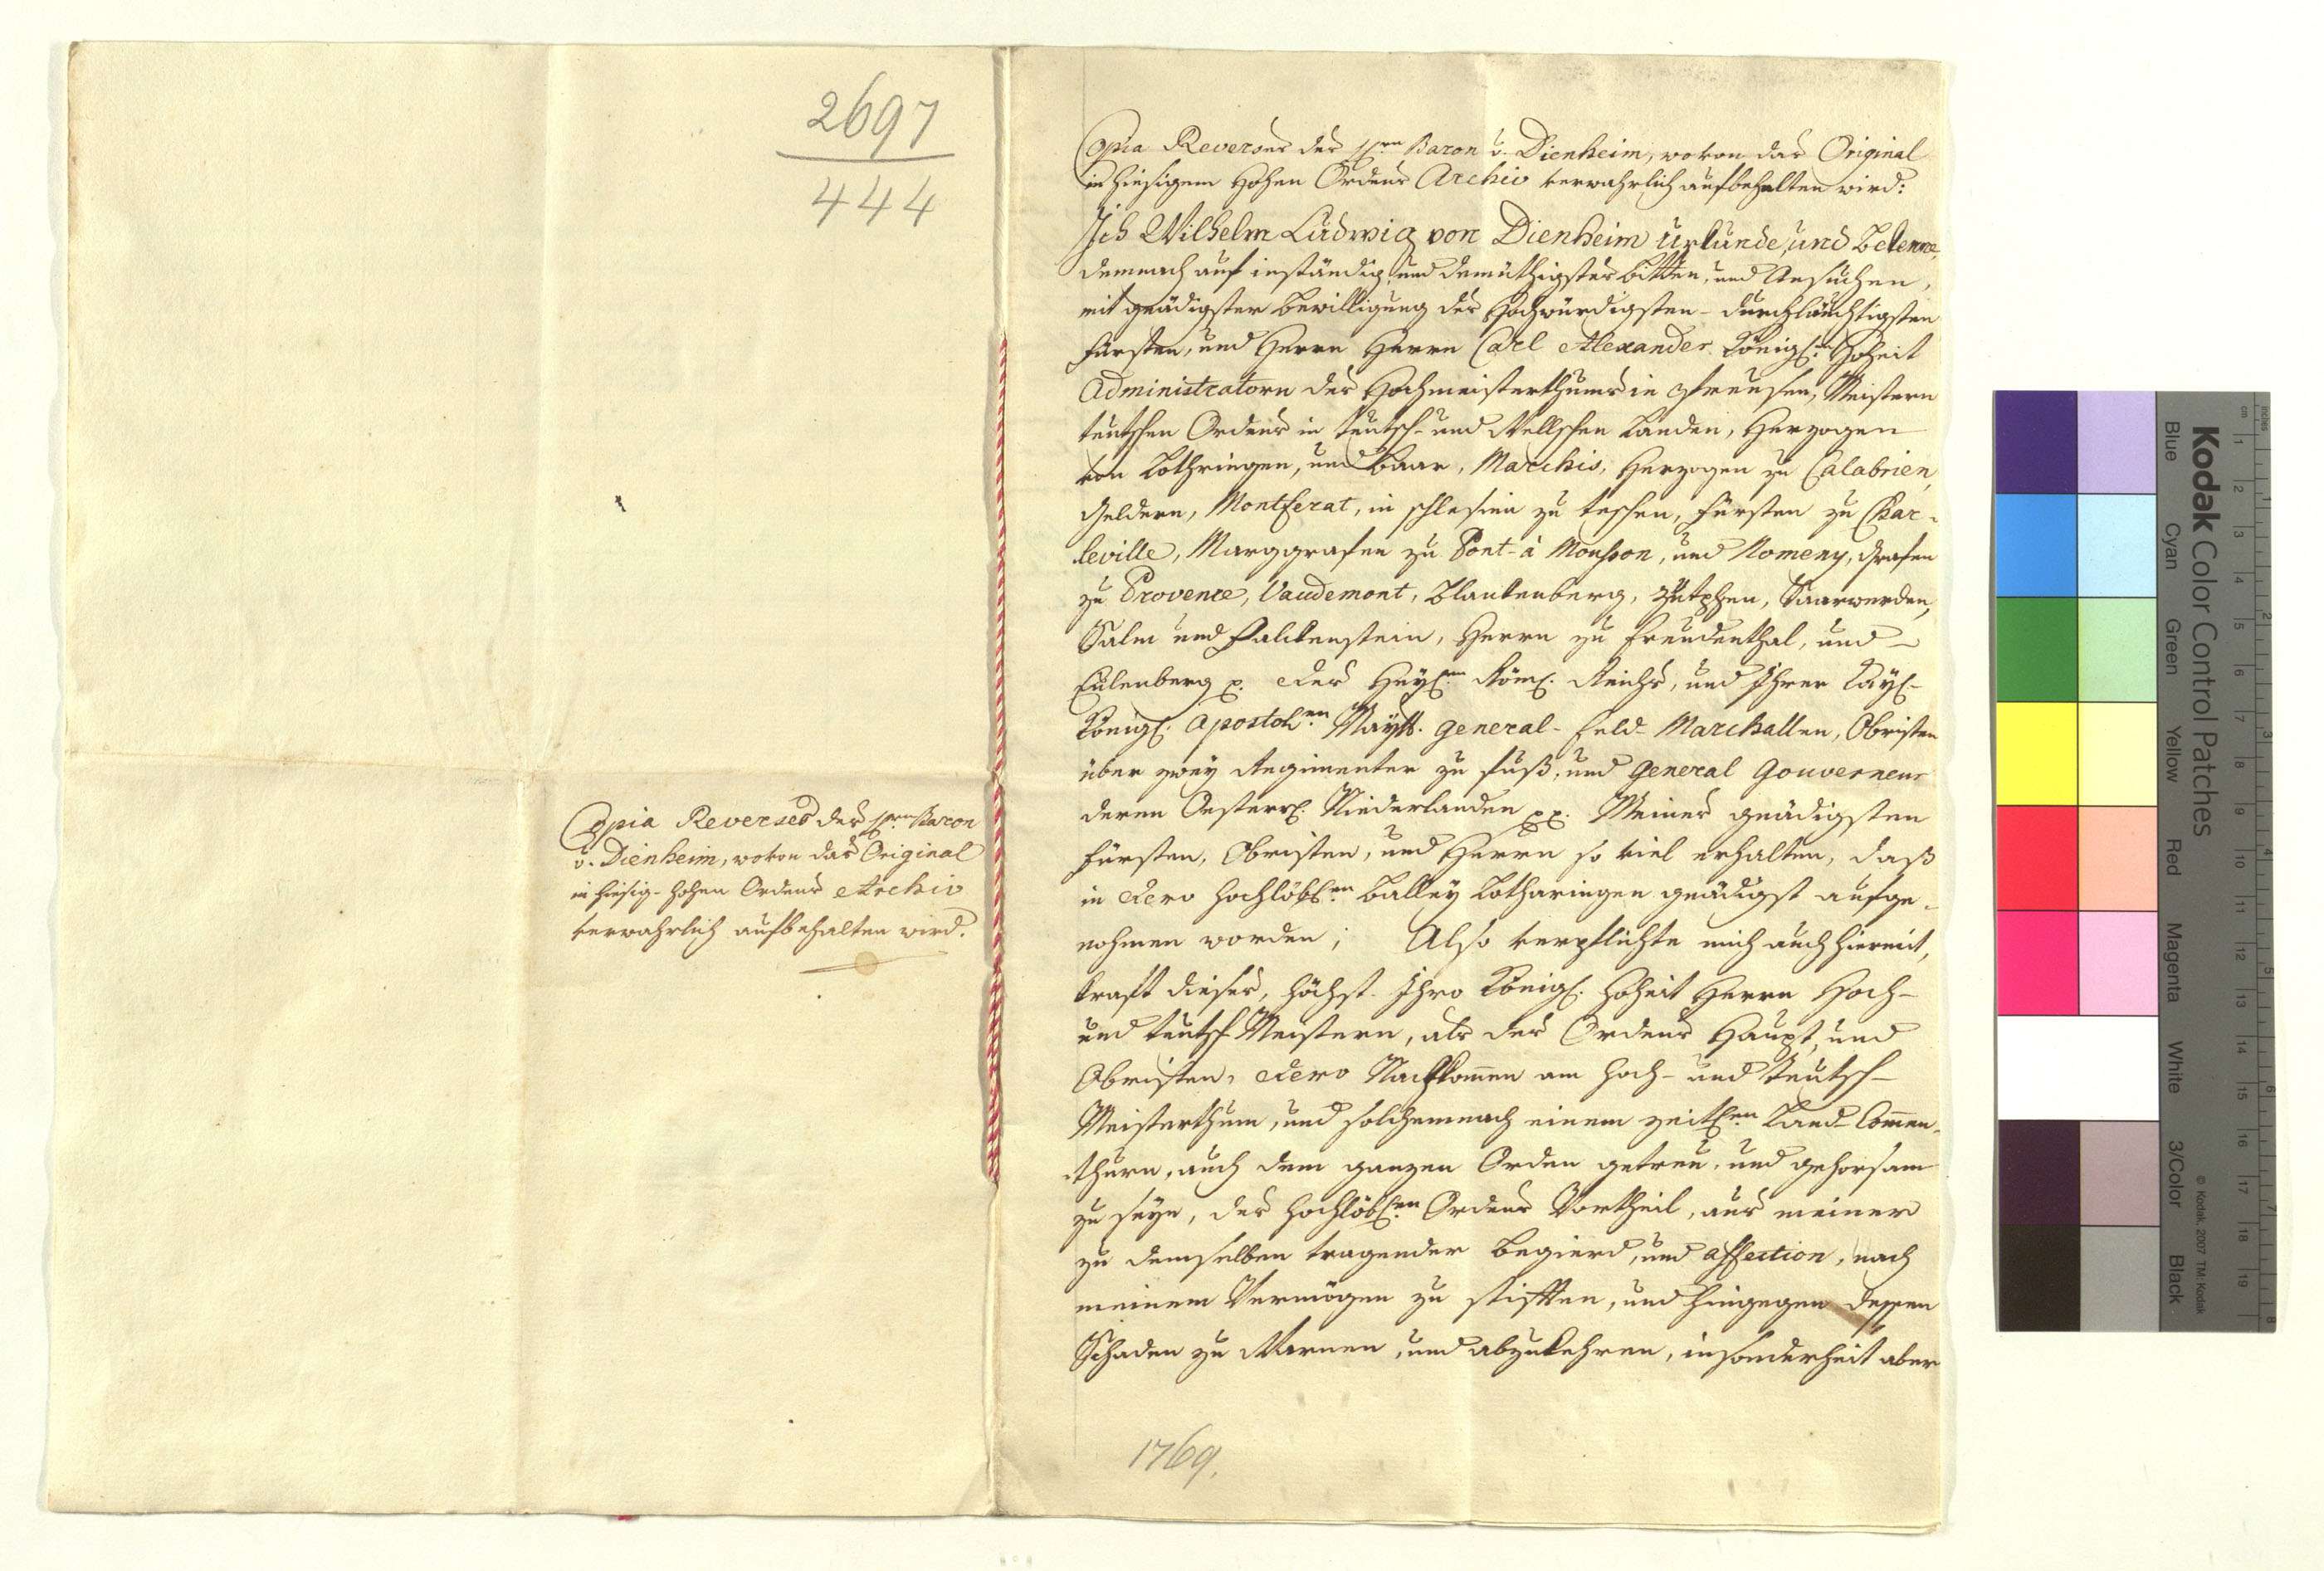 2697
444
Copia Reverses des H.rn Baron
v. Dienheim, wovon das Original
in hiesig-hohen Ordens Archiv
verwahrlich aufbehalten wird.
Copia Reverses des H.rn Baron v. Dienheim, wovon das Original
in hiesigem hohen Ordens Archiv verwahrlich aufbehalten wird:
Ich Wilhelm Ludwig von Dienheim Urkunde, und Bekenne,
demnach auf inständig, und demüthigstes bitten, und Ansuchen,
mit gnädigster bewilligung des Hochwürdigsten- Durchläuchtigsten
Fürsten, und Herrn Herrn Carl Alexander Königl.r Hoheit
Administratorn des Hochmeisterthums in Preussen, Meistern
teutschen Ordens in Teutsch- und Wellschen Landen, Herzogen
von Lothringen, und Baar, Marchis, Herzogen zu Calabrien,
Geldern, Montferat, in schlesien zu teschen, Fürsten zu Char-
leville, Marggrafen zu Pont-à Mousson, und Nomeny, Grafen
zu Provence, Vaudemont, Blankenberg, Zütphen, Saarwerden,
Salm und Falckenstein, Herrn zu Freudenthal, und
Eulenberg p. des Heyl.en Röm. Reichs, und Ihrer Kayl.
Königl. Apostol.en Mayst. General-Feld-Marchallen, Obristen
über zwey Regimenter zu fuß, und General Gouverneur
deren Oesterr. Niederlanden pp. Meines gnädigsten
Fürsten, Obristen, und Herrn so viel erhalten, daß
in dero hochlöbl.en Balley Lotharingen gnädigst aufge-
nohmen worden; Also verpflichte mich auch hiermit,
kraft dieses, höchst- Ihro Königl. Hoheit Herrn Hoch-
und teutsch Meistern, als des Ordens Haupt, und
Obristen, dero Nachkommen am hoch- und teutsch-
Meisterthum, und solchemnach einem zeitl.en Land-Commen-
thurn, auch dem ganzen Orden getreu, und gehorsam
zu seyn, des hochlöbl.en Ordens Vortheil, aus meiner
zu demselben tragender Begierd, und affection, nach
meinem Vermögen zu stifften, und hingegen dessen
Schaden zu Warnen, und abzukehren, insonderheit aber
1769.
Kodak Color Control Patches
© Kodak, 2007 TM: Kodak
Blue Cyan Green Yellow Red Magenta White 3/Color Black
inches
cm
1 2 3 4 5 6 7 8 9 10 11 12 13 14 15 16 17 18 19
1 2 3 4 5 6 7 8